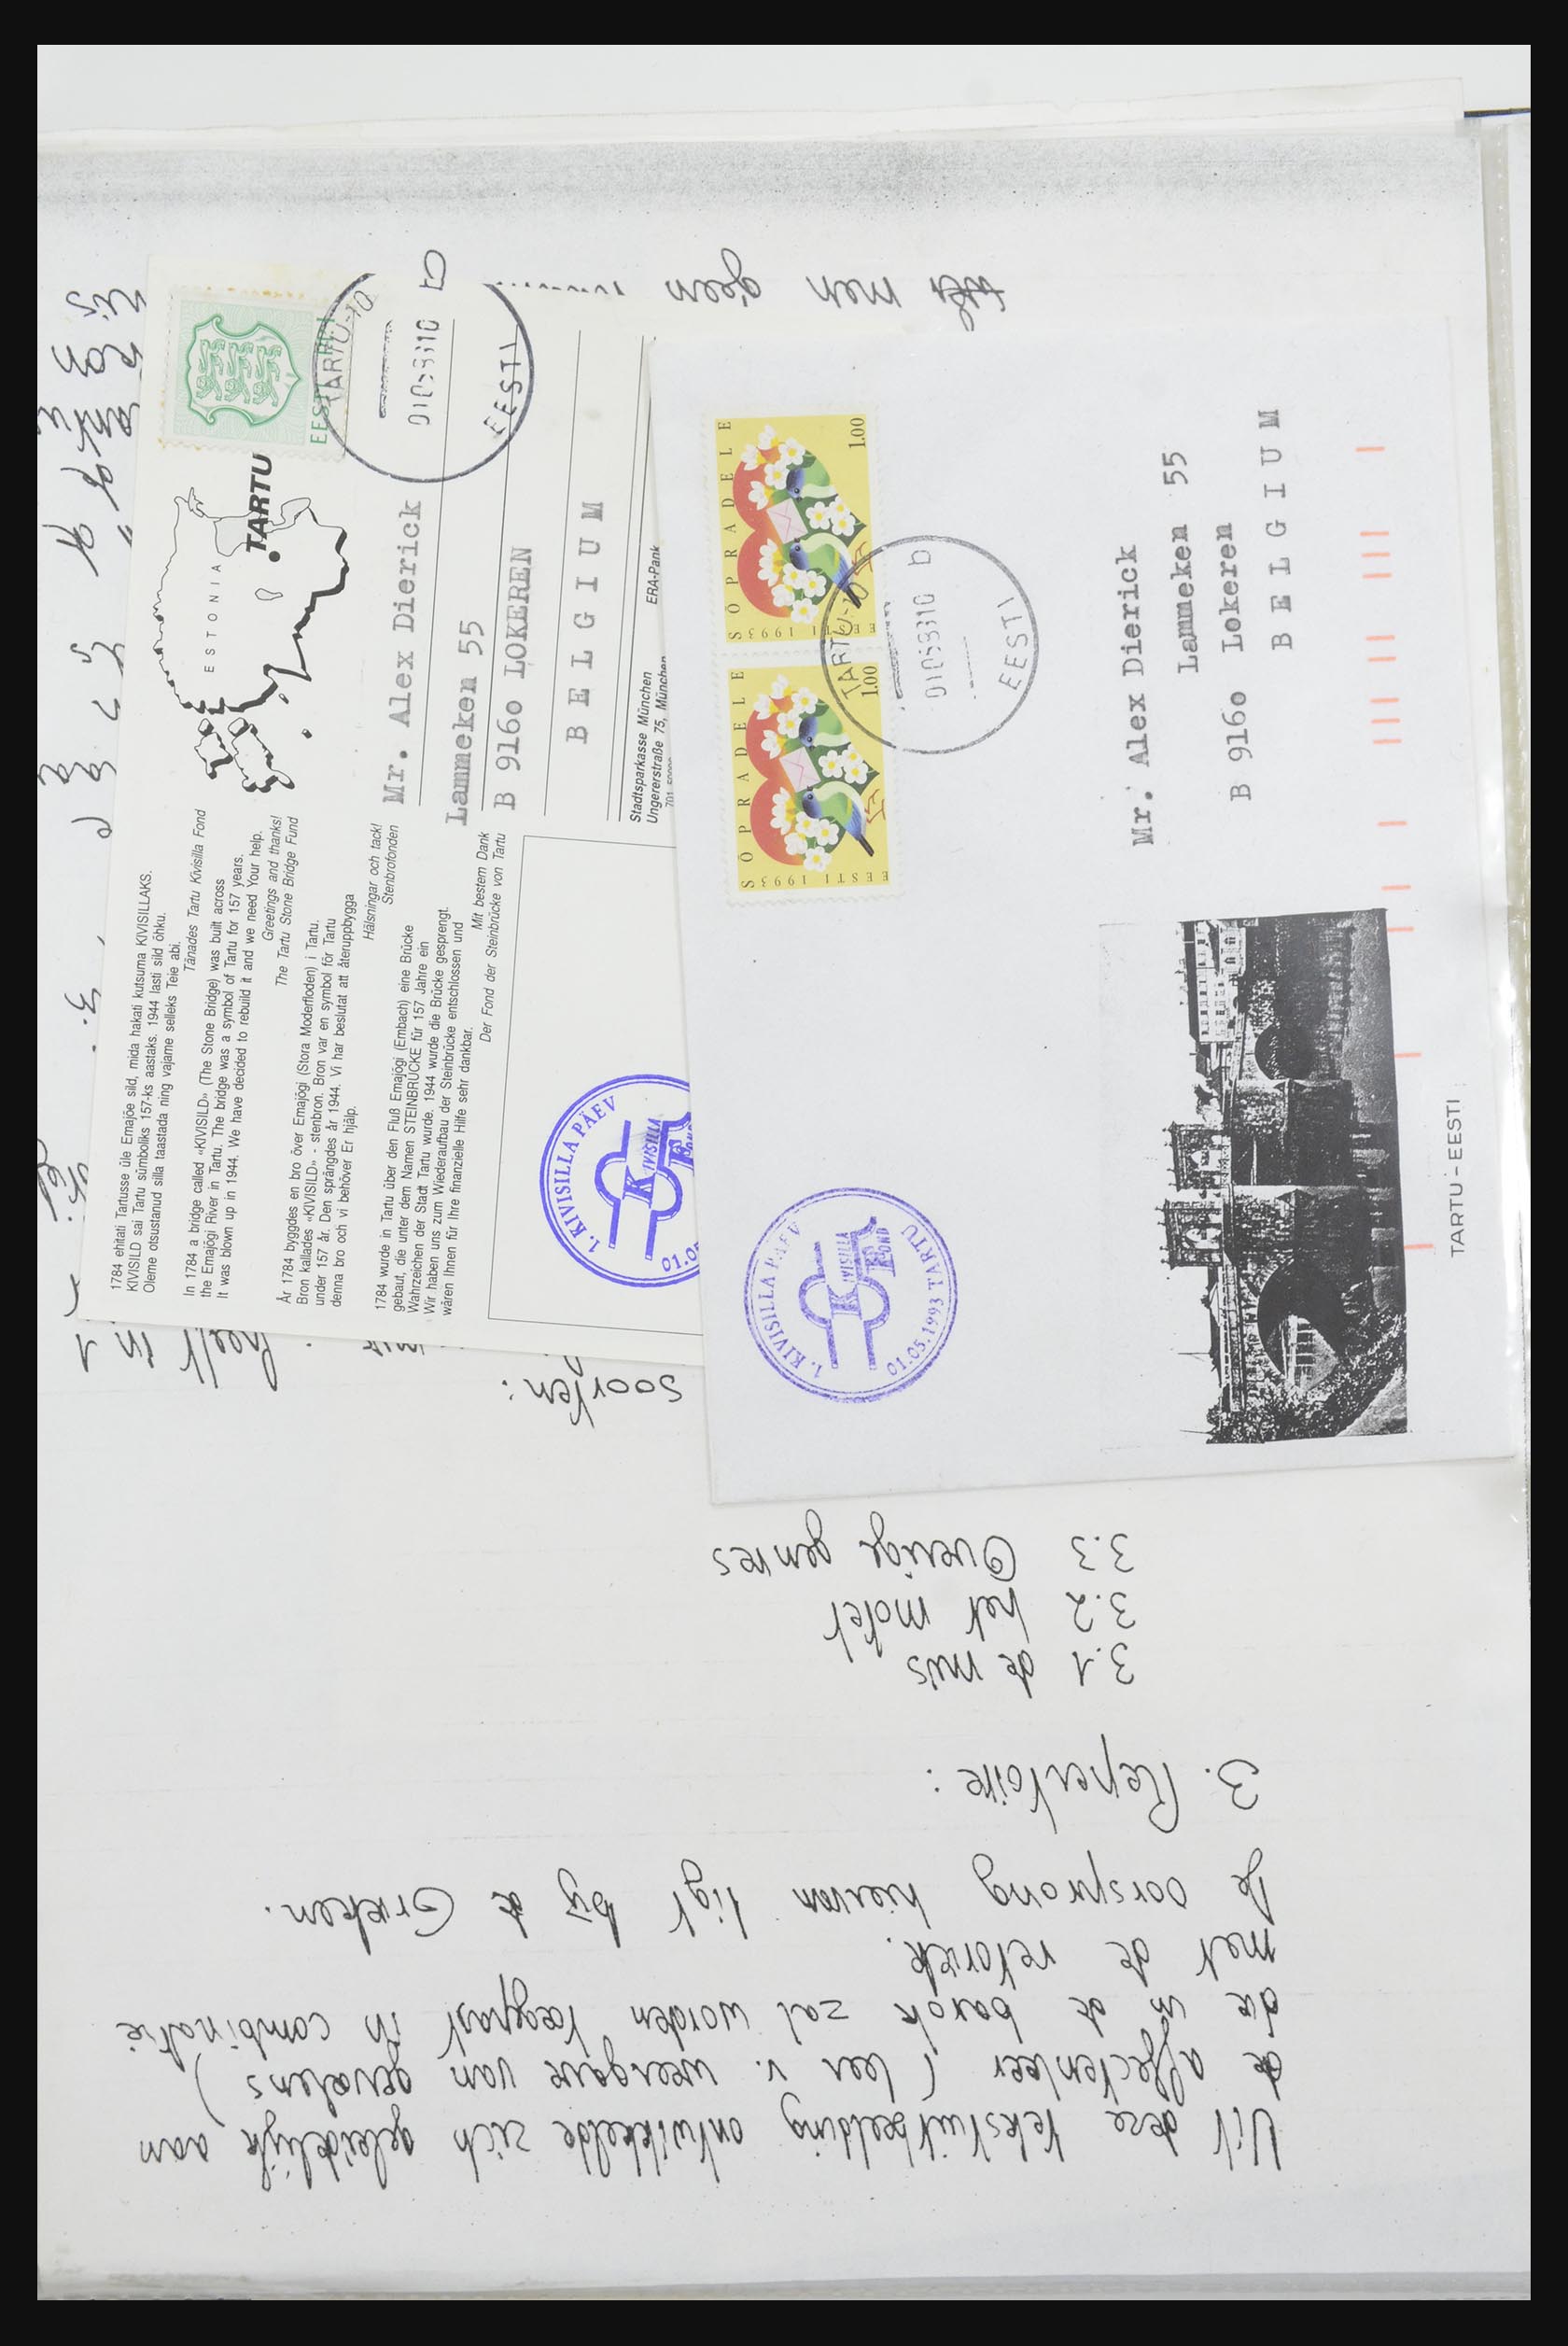 1784 ehitati Tartusse üle Emajõe sild, mida hakati kutsuma KIVISILLAKS.
KIVISILD sai Tartu sümboliks 157-ks aastaks. 1944 lasti sild õhku.
Oleme otsustanud silla taastada ning vajame selleks Teie abi.
Tänades Tartu Kivisilla Fond
In 1784 a bridge called «KIVISILD» (The Stone Bridge) was built across
the Emajõgi River in Tartu. The bridge was a symbol of Tartu for 157 years.
It was blown up in 1944. We have decided to rebuild it and we need Your help.
Greetings and thanks!
The Tartu Stone Bridge Fund
År 1784 byggdes en bro över Emajõgi (Stora Moderfloden) i Tartu.
Bron kallades «KIVISILD» - stenbron. Bron var en symbol för Tartu
under 157 år. Den sprängdes år 1944. Vi har beslutat att återuppbygga
denna bro och vi behöver Er hjälp.
Hälsningar och tack!
Stenbrofonden
1784 wurde in Tartu über den Fluß Emajõgi (Embach) eine Brücke
gebaut, die unter dem Namen STEINBRÜCKE für 157 Jahre ein
Wahrzeichen der Stadt Tartu wurde. 1944 wurde die Brücke gesprengt.
Wir haben uns zum Wiederaufbau der Steinbrücke entschlossen und
wären Ihnen für Ihre finanzielle Hilfe sehr dankbar.
Mit bestem Dank
Der Fond der Steinbrücke von Tartu
1. KIVISILLA PÄEV
KIVISILLA
FOND
ESTONIA
TARTU
EESTI
TARTU-10
01059310
a
EESTI
Mr. Alex Dierick
Lammeken 55
B 9160 LOKEREN
BELGIUM
Stadtsparkasse München
Ungererstraße 75, München
ERA-Pank
SÕPRADELE
EESTI 1993
1.00
SÕPRADELE
EESTI 1993
1.00
TARTU-10
01059310
b
EESTI
Mr. Alex Dierick
Lammeken 55
B 9160 Lokeren
BELGIUM
1. KIVISILLA PÄEV
KIVISILLA
FOND
01.05.1993 TARTU
TARTU - EESTI
Uit deze tekstuitbeelding ontwikkelde zich geleidelijk aan
de affectenleer (leer v. weergave van gevoelens)
die in de barok zal worden toegepast in combinatie
met de retoriek.
De oorsprong hiervan ligt bij de Grieken.
3. Repertoire :
3.1 de mis
3.2 het motet
3.3 Overige genres
soorten :
men geen